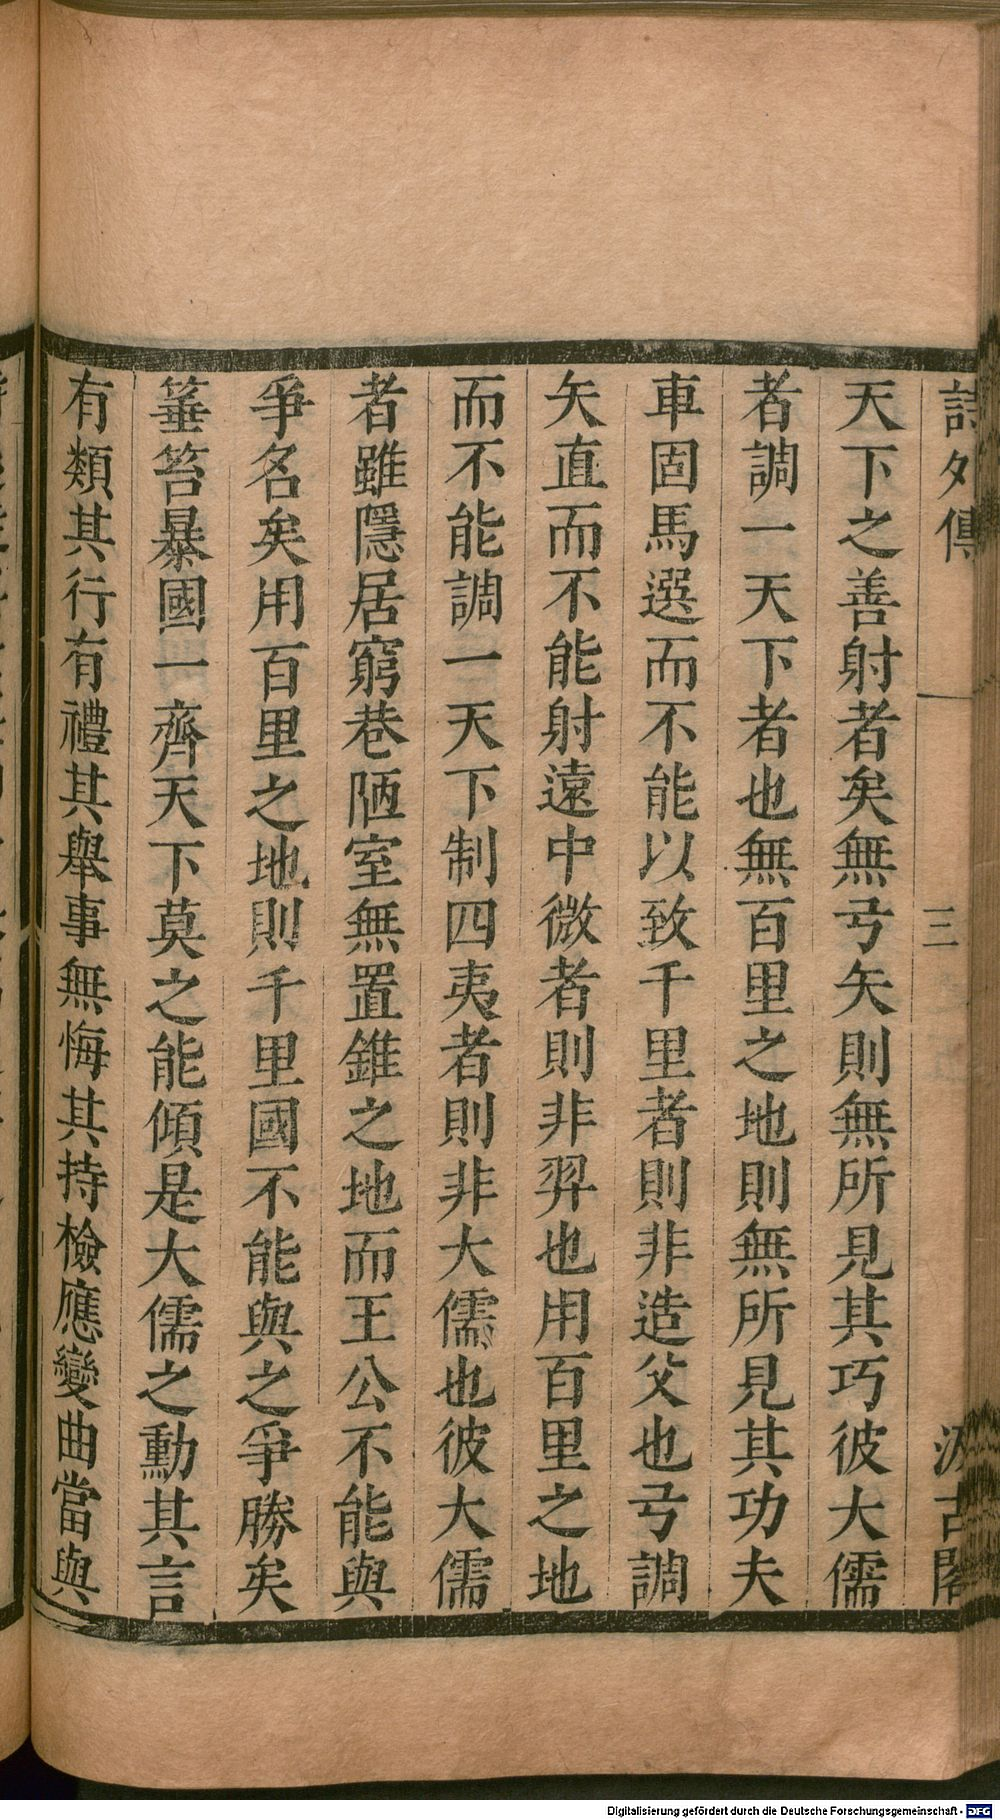 詩外傳
三
汲古閣
天下之善射者矣無弓矢則無所見其巧彼大儒
者調一天下者也無百里之地則無所見其功夫
車固馬選而不能以致千里者則非造父也弓調
矢直而不能射遠中微者則非羿也用百里之地
而不能調一天下制四夷者則非大儒也彼大儒
者雖隱居窮巷陋室無置錐之地而王公不能與
爭名矣用百里之地則千里國不能與之爭勝矣
箠笞暴國一齊天下莫之能傾是大儒之勳其言
有類其行有禮其舉事無悔其持檢應變曲當與
Digitalisierung gefördert durch die Deutsche Forschungsgemeinschaft - DFG